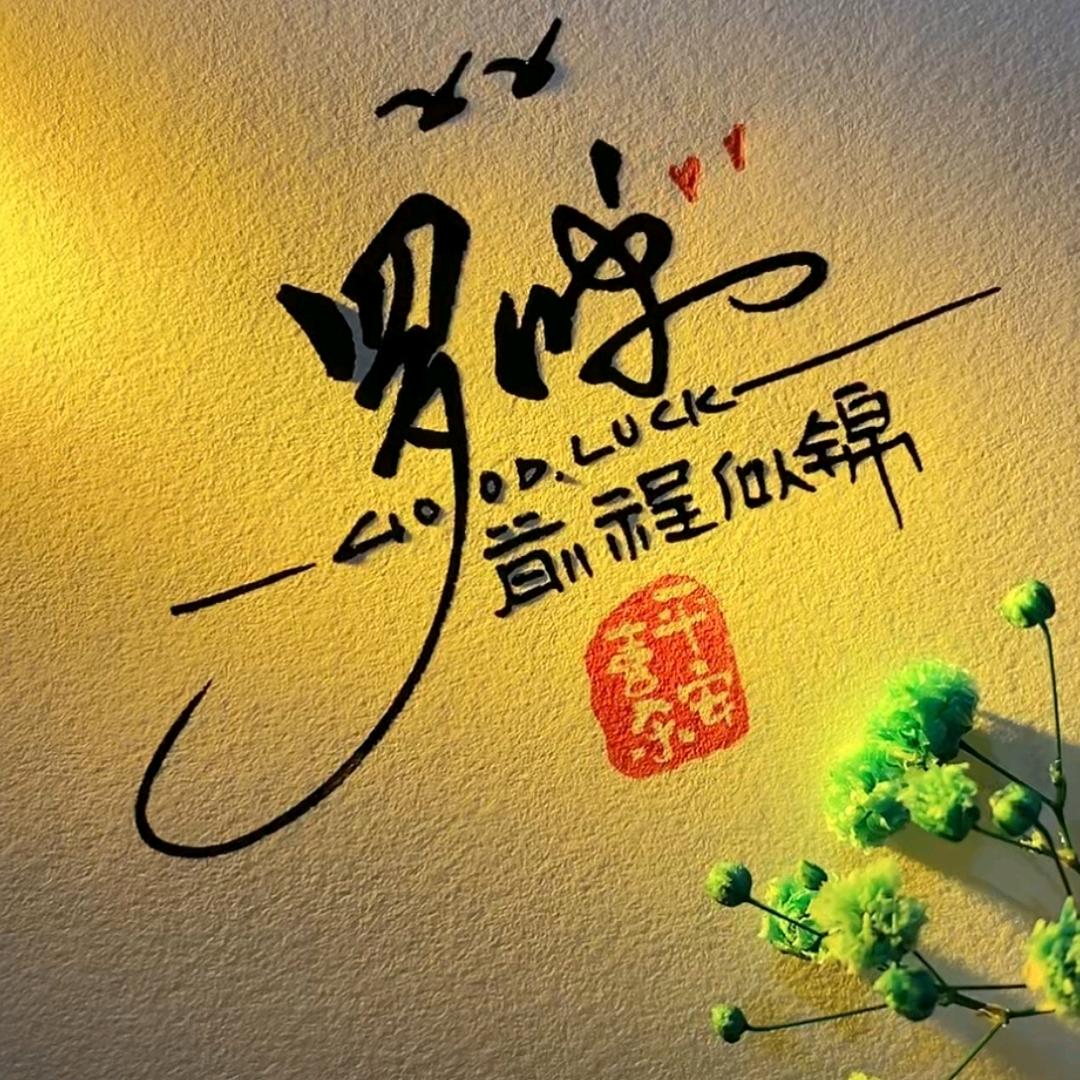 罗
GOOD.LUCK
前程似锦
平安
喜乐